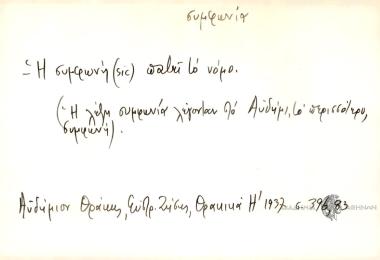 συμφωνία
- Ἡ συμφωνή (sic) πατεῖ τὸ νόμο.
(- Ἡ λέξη συμφωνία λέγονταν στὸ Αὐδήμι, τὸ περισσότερο,
συμφωνή).
Αὐδήμιον Θράκης, Εὐστρ. Ζήσης, Θρακικά Η' 1937 σ. 396, 83